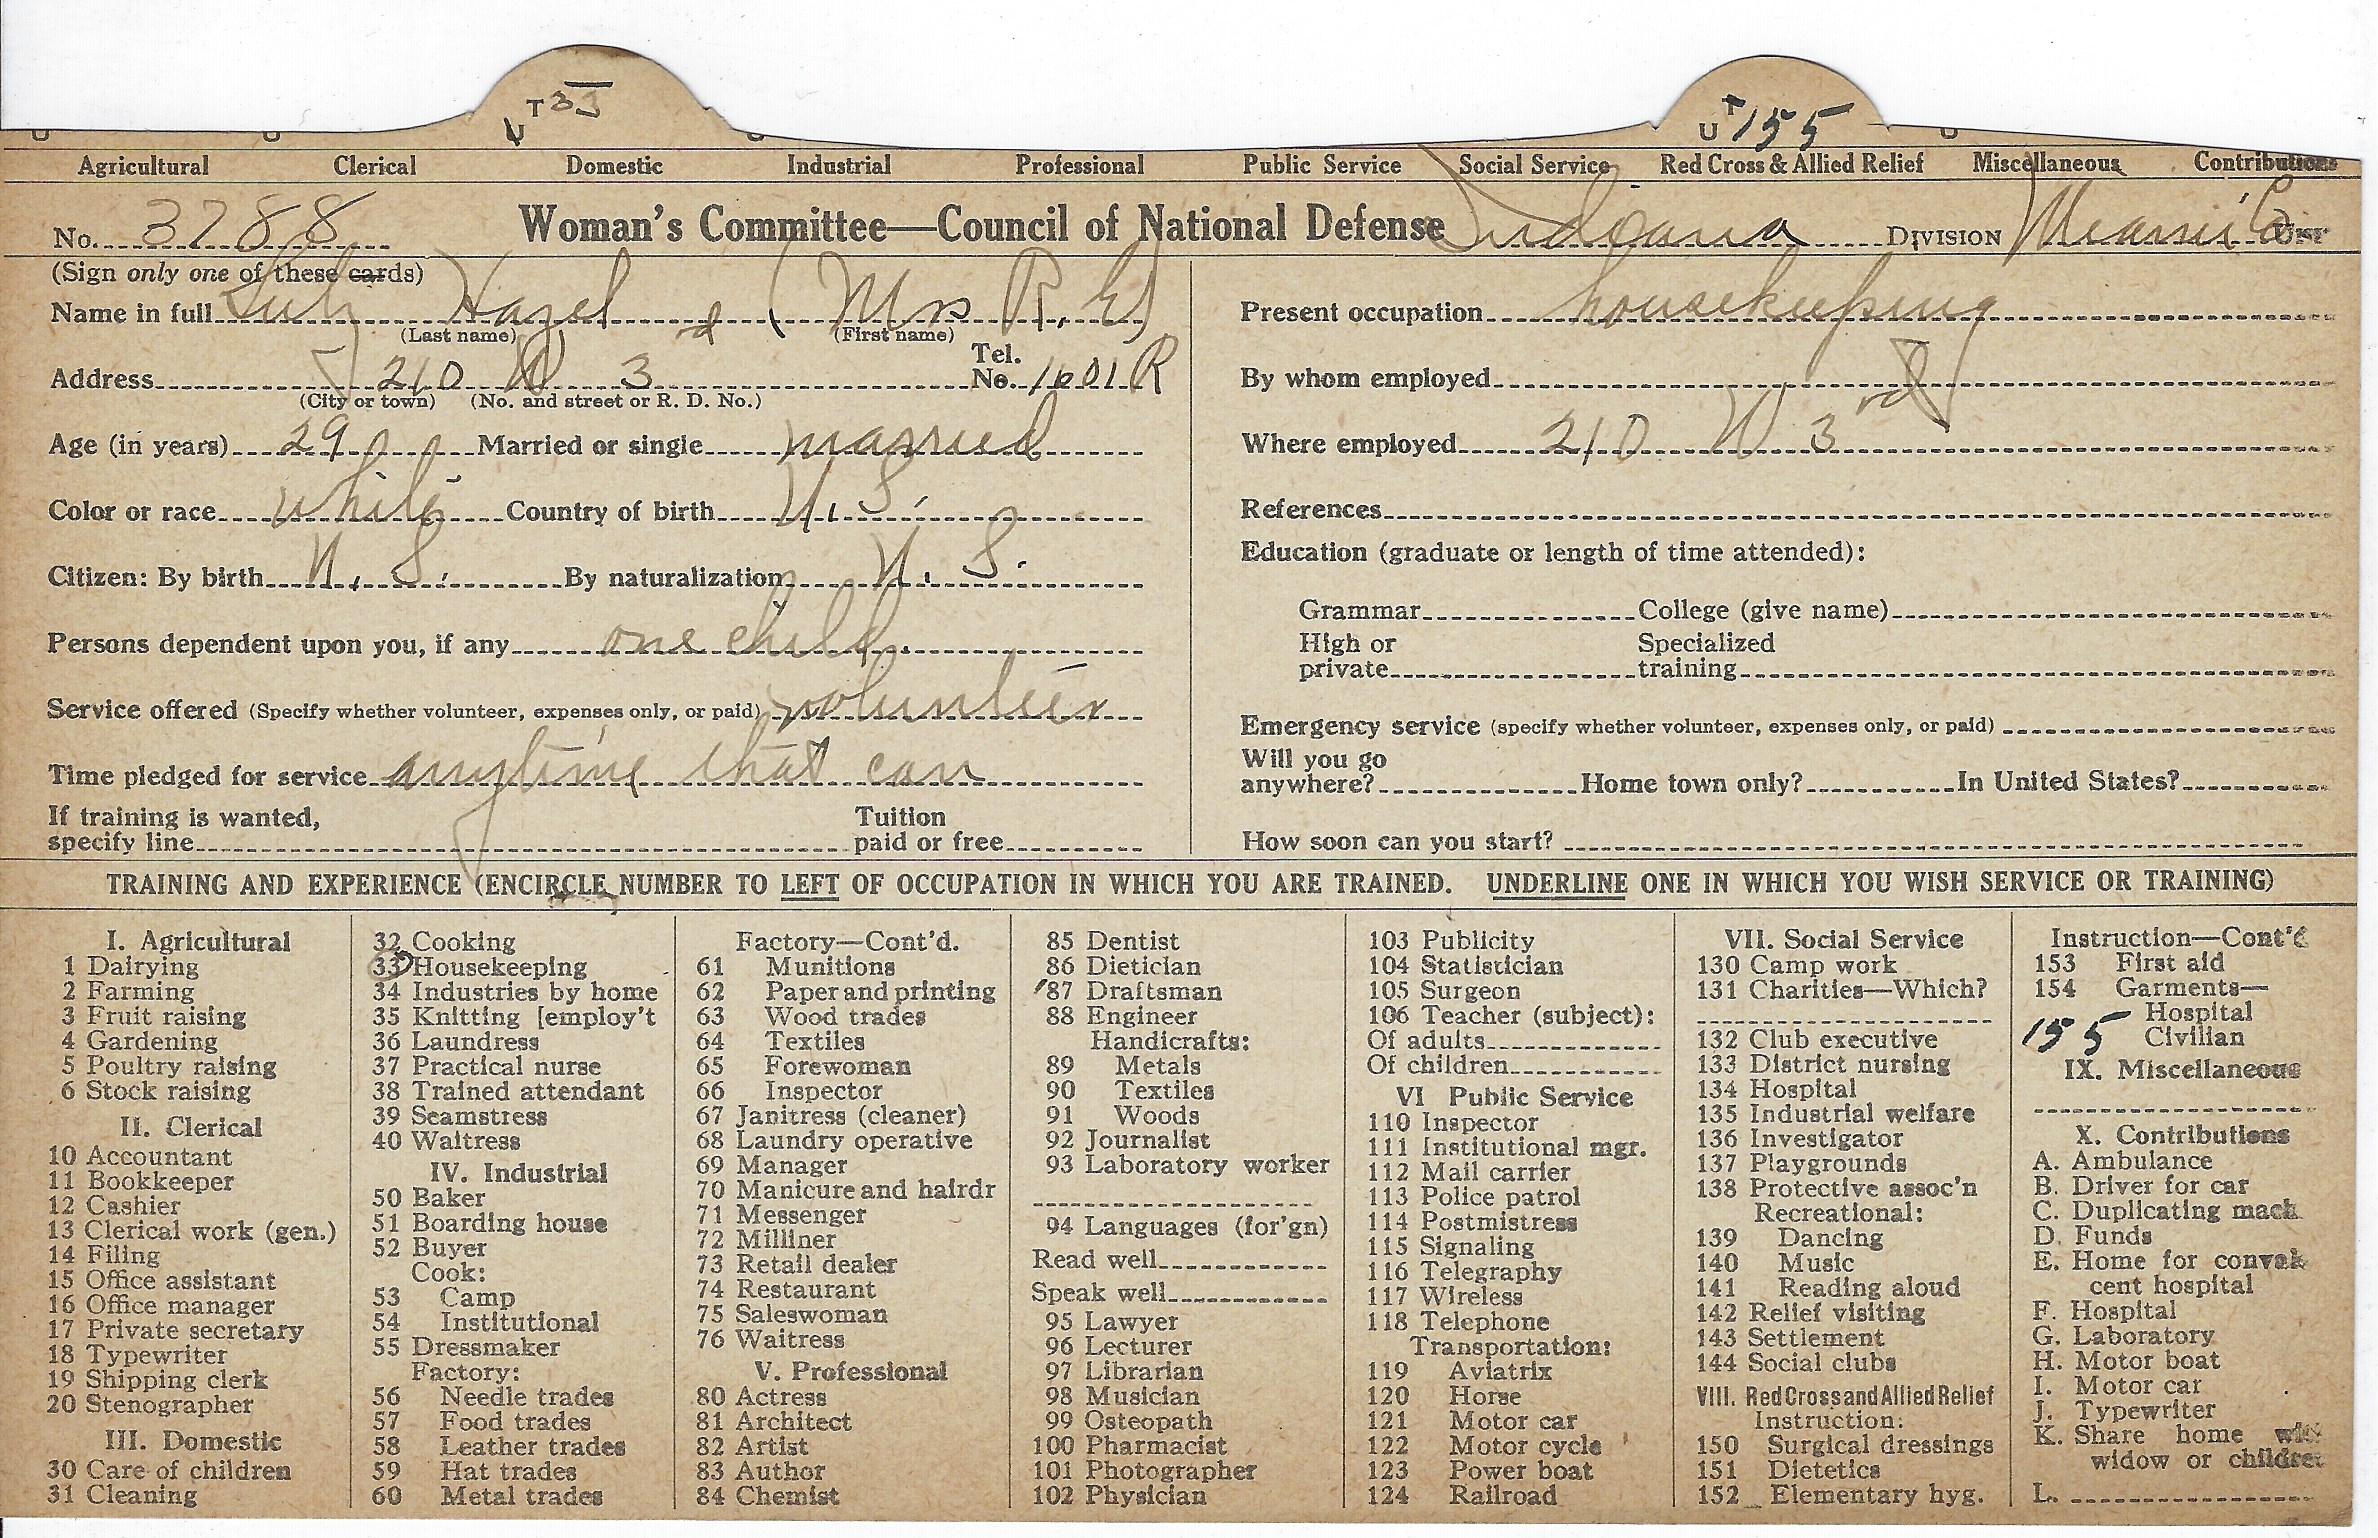 T 33
U
U T 155
Agricultural Clerical Domestic Industrial Professional Public Service Social Service Red Cross & Allied Relief Miscellaneous Contributions
No. 3788 Woman's Committee—Council of National Defense Indiana DIVISION Miami Co. UNIT
(Sign only one of these cards)
Name in full Hazel (Mrs R. E)
(Last name) (First name)
Address 210 W 3rd Tel. No. 1601 R
(City or town) (No. and street or R. D. No.)
Age (in years) 29 Married or single married
Color or race white Country of birth U. S.
Citizen: By birth U. S. By naturalization U. S.
Persons dependent upon you, if any one child.
Service offered (Specify whether volunteer, expenses only, or paid) volunteer
Time pledged for service anytime that can
If training is wanted, specify line Tuition paid or free
Present occupation housekeeping
By whom employed
Where employed 210 W 3rd
References
Education (graduate or length of time attended):
Grammar College (give name)
High or private Specialized training
Emergency service (specify whether volunteer, expenses only, or paid)
Will you go anywhere? Home town only? In United States?
How soon can you start?
TRAINING AND EXPERIENCE (ENCIRCLE NUMBER TO LEFT OF OCCUPATION IN WHICH YOU ARE TRAINED. UNDERLINE ONE IN WHICH YOU WISH SERVICE OR TRAINING)
I. Agricultural
1 Dairying
2 Farming
3 Fruit raising
4 Gardening
5 Poultry raising
6 Stock raising
II. Clerical
10 Accountant
11 Bookkeeper
12 Cashier
13 Clerical work (gen.)
14 Filing
15 Office assistant
16 Office manager
17 Private secretary
18 Typewriter
19 Shipping clerk
20 Stenographer
III. Domestic
30 Care of children
31 Cleaning
32 Cooking
33 Housekeeping
34 Industries by home
35 Knitting [employ't
36 Laundress
37 Practical nurse
38 Trained attendant
39 Seamstress
40 Waitress
IV. Industrial
50 Baker
51 Boarding house
52 Buyer
Cook:
53 Camp
54 Institutional
55 Dressmaker
Factory:
56 Needle trades
57 Food trades
58 Leather trades
59 Hat trades
60 Metal trades
Factory—Cont'd.
61 Munitions
62 Paper and printing
63 Wood trades
64 Textiles
65 Forewoman
66 Inspector
67 Janitress (cleaner)
68 Laundry operative
69 Manager
70 Manicure and hairdr
71 Messenger
72 Milliner
73 Retail dealer
74 Restaurant
75 Saleswoman
76 Waitress
V. Professional
80 Actress
81 Architect
82 Artist
83 Author
84 Chemist
85 Dentist
86 Dietician
87 Draftsman
88 Engineer
Handicrafts:
89 Metals
90 Textiles
91 Woods
92 Journalist
93 Laboratory worker
94 Languages (for'gn)
Read well
Speak well
95 Lawyer
96 Lecturer
97 Librarian
98 Musician
99 Osteopath
100 Pharmacist
101 Photographer
102 Physician
103 Publicity
104 Statistician
105 Surgeon
106 Teacher (subject):
Of adults
Of children
VI Public Service
110 Inspector
111 Institutional mgr.
112 Mail carrier
113 Police patrol
114 Postmistress
115 Signaling
116 Telegraphy
117 Wireless
118 Telephone
Transportation:
119 Aviatrix
120 Horse
121 Motor car
122 Motor cycle
123 Power boat
124 Railroad
VII. Social Service
130 Camp work
131 Charities—Which?
132 Club executive
133 District nursing
134 Hospital
135 Industrial welfare
136 Investigator
137 Playgrounds
138 Protective assoc'n
Recreational:
139 Dancing
140 Music
141 Reading aloud
142 Relief visiting
143 Settlement
144 Social clubs
VIII. Red Cross and Allied Relief
Instruction:
150 Surgical dressings
151 Dietetics
152 Elementary hyg.
Instruction—Cont'd
153 First aid
154 Garments—
Hospital
155 Civilian
IX. Miscellaneous
X. Contributions
A. Ambulance
B. Driver for car
C. Duplicating mach
D. Funds
E. Home for convales
cent hospital
F. Hospital
G. Laboratory
H. Motor boat
I. Motor car
J. Typewriter
K. Share home with
widow or children
L.